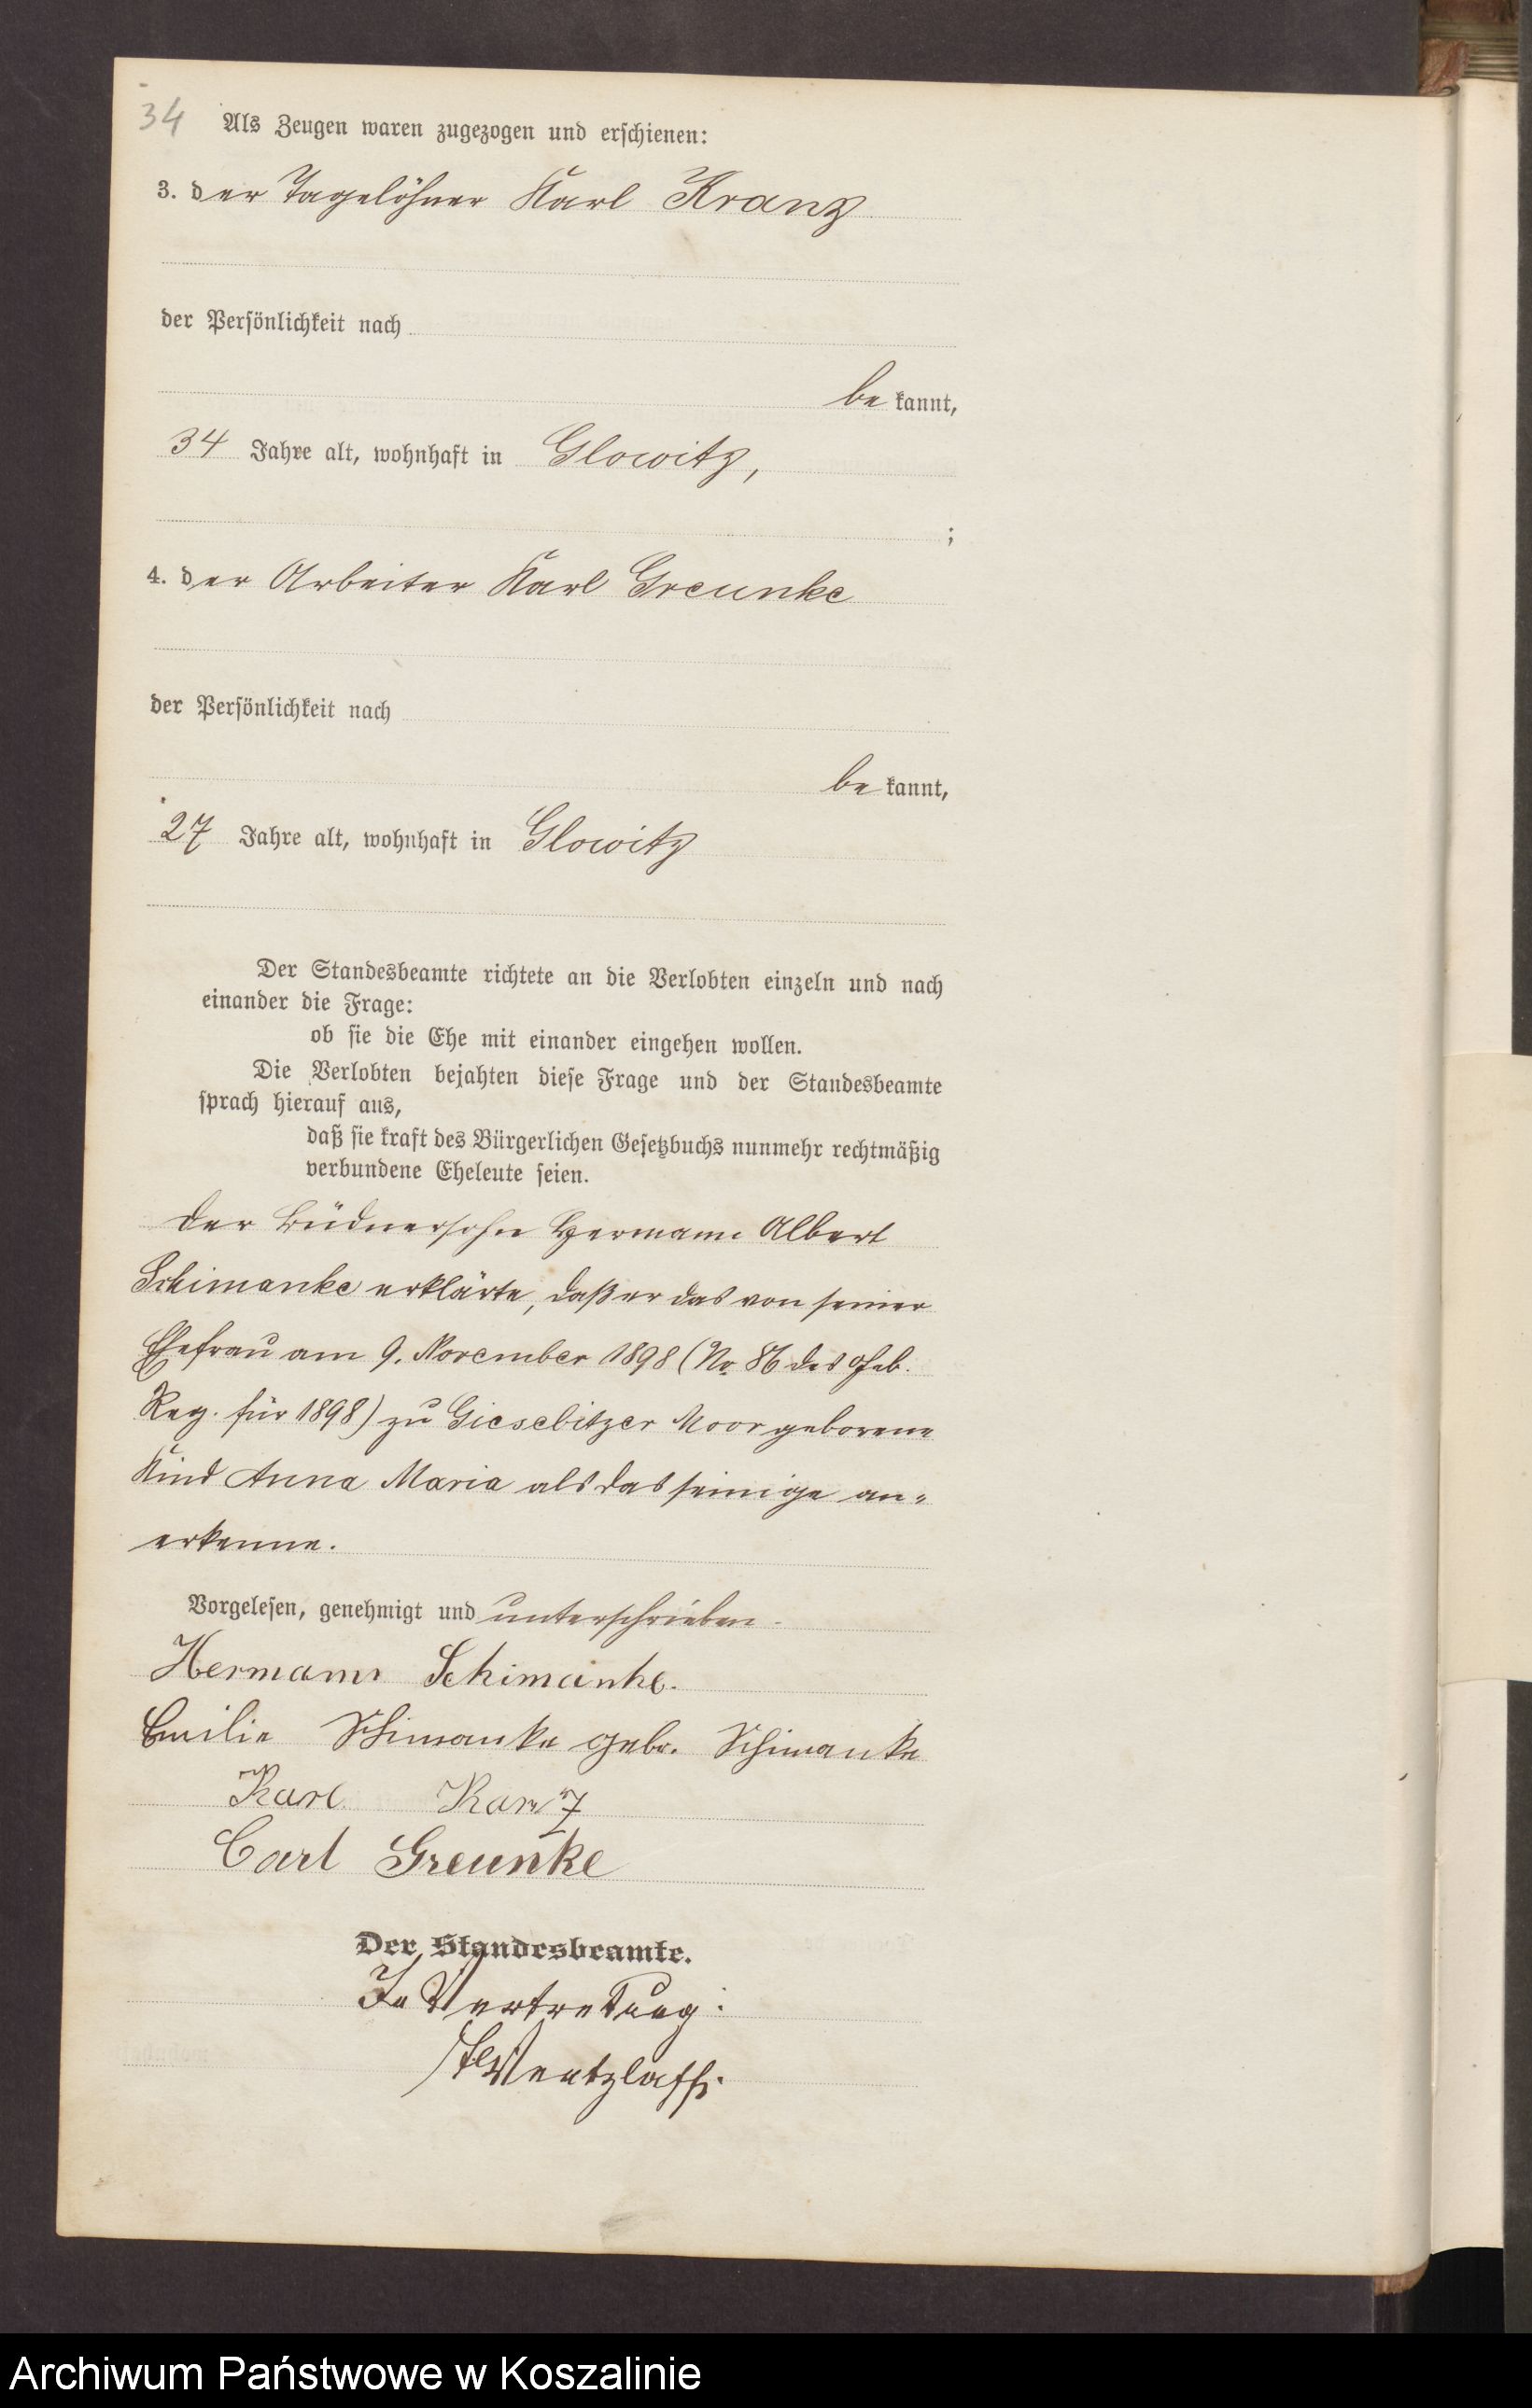 34 Als Zeugen waren zugezogen und erschienen:
3. der Tagelöhner Karl Kranz
der Persönlichkeit nach
be kannt,
34 Jahre alt, wohnhaft in Glowitz,
;
4. der Arbeiter Karl Greunke
der Persönlichkeit nach
be kannt,
27 Jahre alt, wohnhaft in Glowitz
Der Standesbeamte richtete an die Verlobten einzeln und nach
einander die Frage:
ob sie die Ehe mit einander eingehen wollen.
Die Verlobten bejahten diese Frage und der Standesbeamte
sprach hierauf aus,
daß sie kraft des Bürgerlichen Gesetzbuchs nunmehr rechtmäßig
verbundene Eheleute seien.
Der Büdnersohn Hermann Albert
Schimanke erklärte, daß er das von seiner
Ehefrau am 9. November 1898 (No 86 des Geb.
Reg. für 1898) zu Giesebitzer Moor geborene
Kind Anna Maria als das seinige an=
erkenne.
Vorgelesen, genehmigt und unterschrieben.
Hermann Schimanke.
Emilie Schimanke geb. Schimanke
Karl
Carl Greunke
Der Standesbeamte.
In Vertretung:
Wentzlaff.
Archiwum Państwowe w Koszalinie